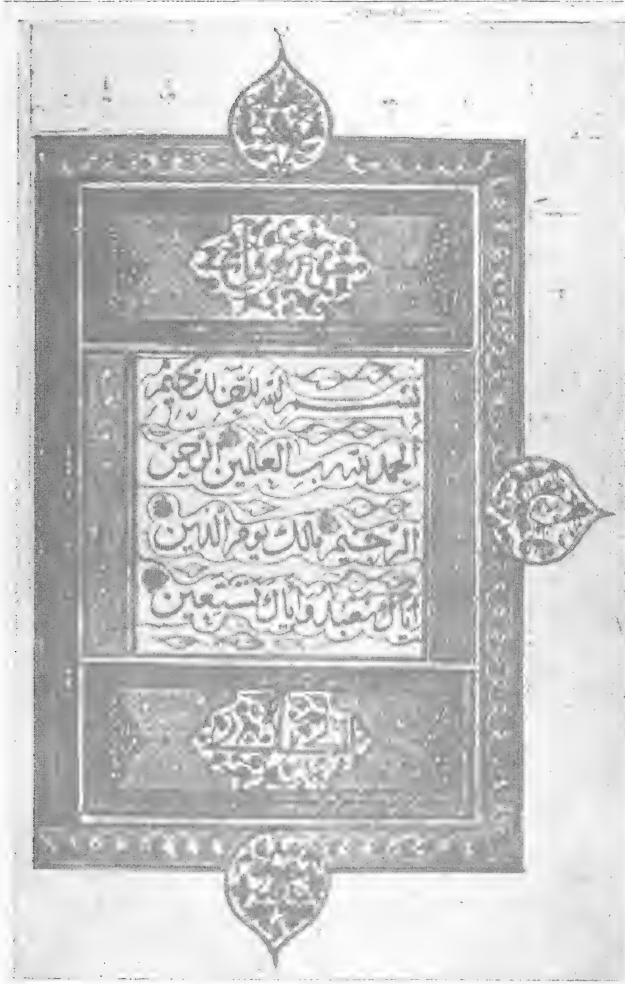 بسم الله الرحمن الرحيم
الحمد لله رب العالمين الرحمن
الرحيم مالك يوم الدين
إياك نعبد وإياك نستعين